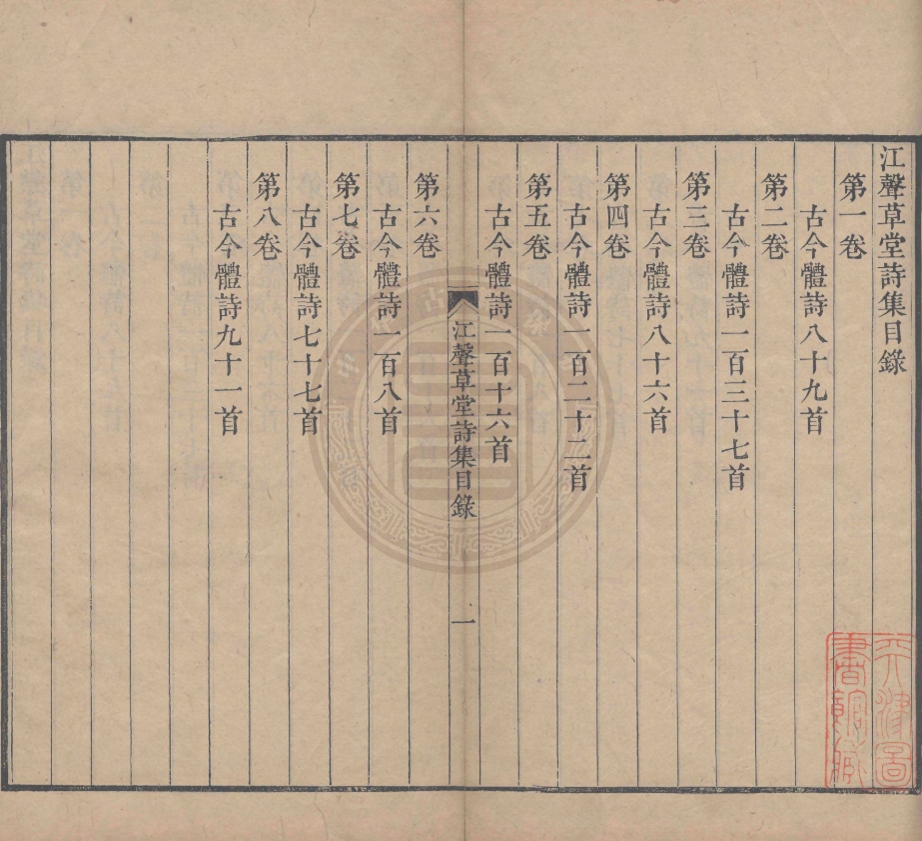 江聲草堂詩集目錄
第一卷
古今體詩八十九首
第二卷
古今體詩一百三十七首
第三卷
古今體詩八十六首
第四卷
古今體詩一百二十二首
第五卷
古今體詩一百十六首
江聲草堂詩集目錄
一
第六卷
古今體詩一百八首
第七卷
古今體詩七十七首
第八卷
古今體詩九十一首
天津圖
書館藏